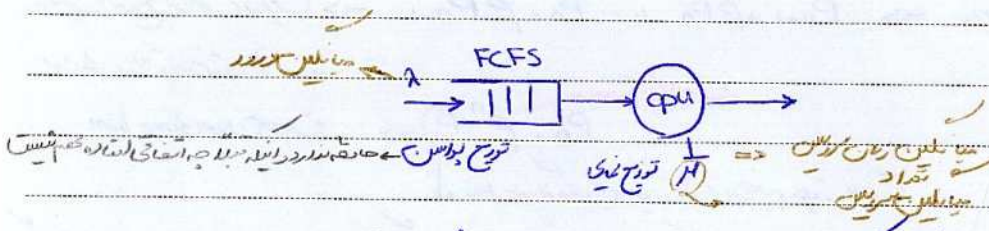 FCFS
میانگین ورود
λ
cpu
توزیع پواسن ← حافظه ندارد و اینکه قبلا چه اتفاقی افتاده مهم نیست
توزیع نمایی
1/μ
⇒ میانگین زمان سرویس
تعداد
میانگین سرویس